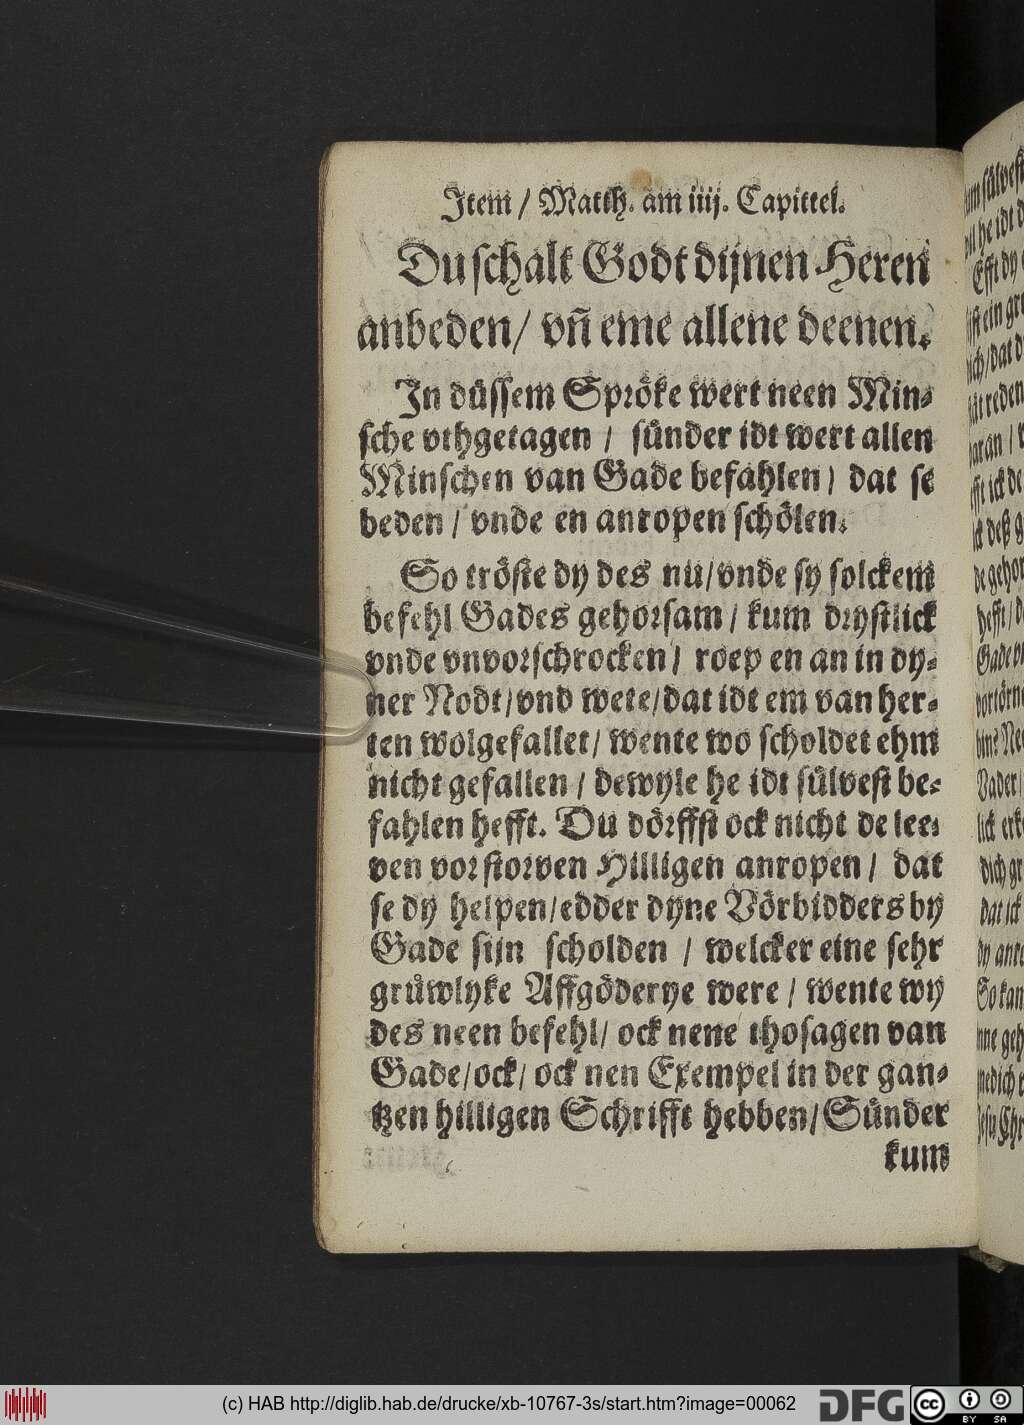 Item / Matth. am iiij. Capittel.
Du schalt Godt dijnen Heren
anbeden / vñ eme allene deenen.
In düssem Spröke wert neen Min-
sche vthgetagen / sünder idt wert allen
Minschen van Gade befahlen / dat se
beden / vnde en anropen schölen.
So tröste dy des nu / vnde sy solckem
befehl Gades gehorsam / kum drystlick
vnde vnvorschrocken / roep en an in dy-
ner Nodt / vnd wete / dat idt em van her-
ten wolgefallet / wente wo scholdet ehm
nicht gefallen / dewyle he idt sülvest be-
fahlen hefft. Du dörffst ock nicht de lee-
ven vorstorven Hilligen anropen / dat
se dy helpen / edder dyne Vörbidders by
Gade sijn scholden / welcker eine sehr
grüwlyke Affgöderye were / wente wy
des neen befehl / ock nene thosagen van
Gade / ock / ock nen Exempel in der gan-
tzen hilligen Schrifft hebben / Sünder
kum
(c) HAB http://diglib.hab.de/drucke/xb-10767-3s/start.htm?image=00062
DFG
cc
BY SA